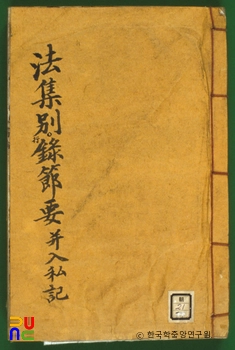 法集别行錄節要并入私記
ⓒ한국학중앙연구원